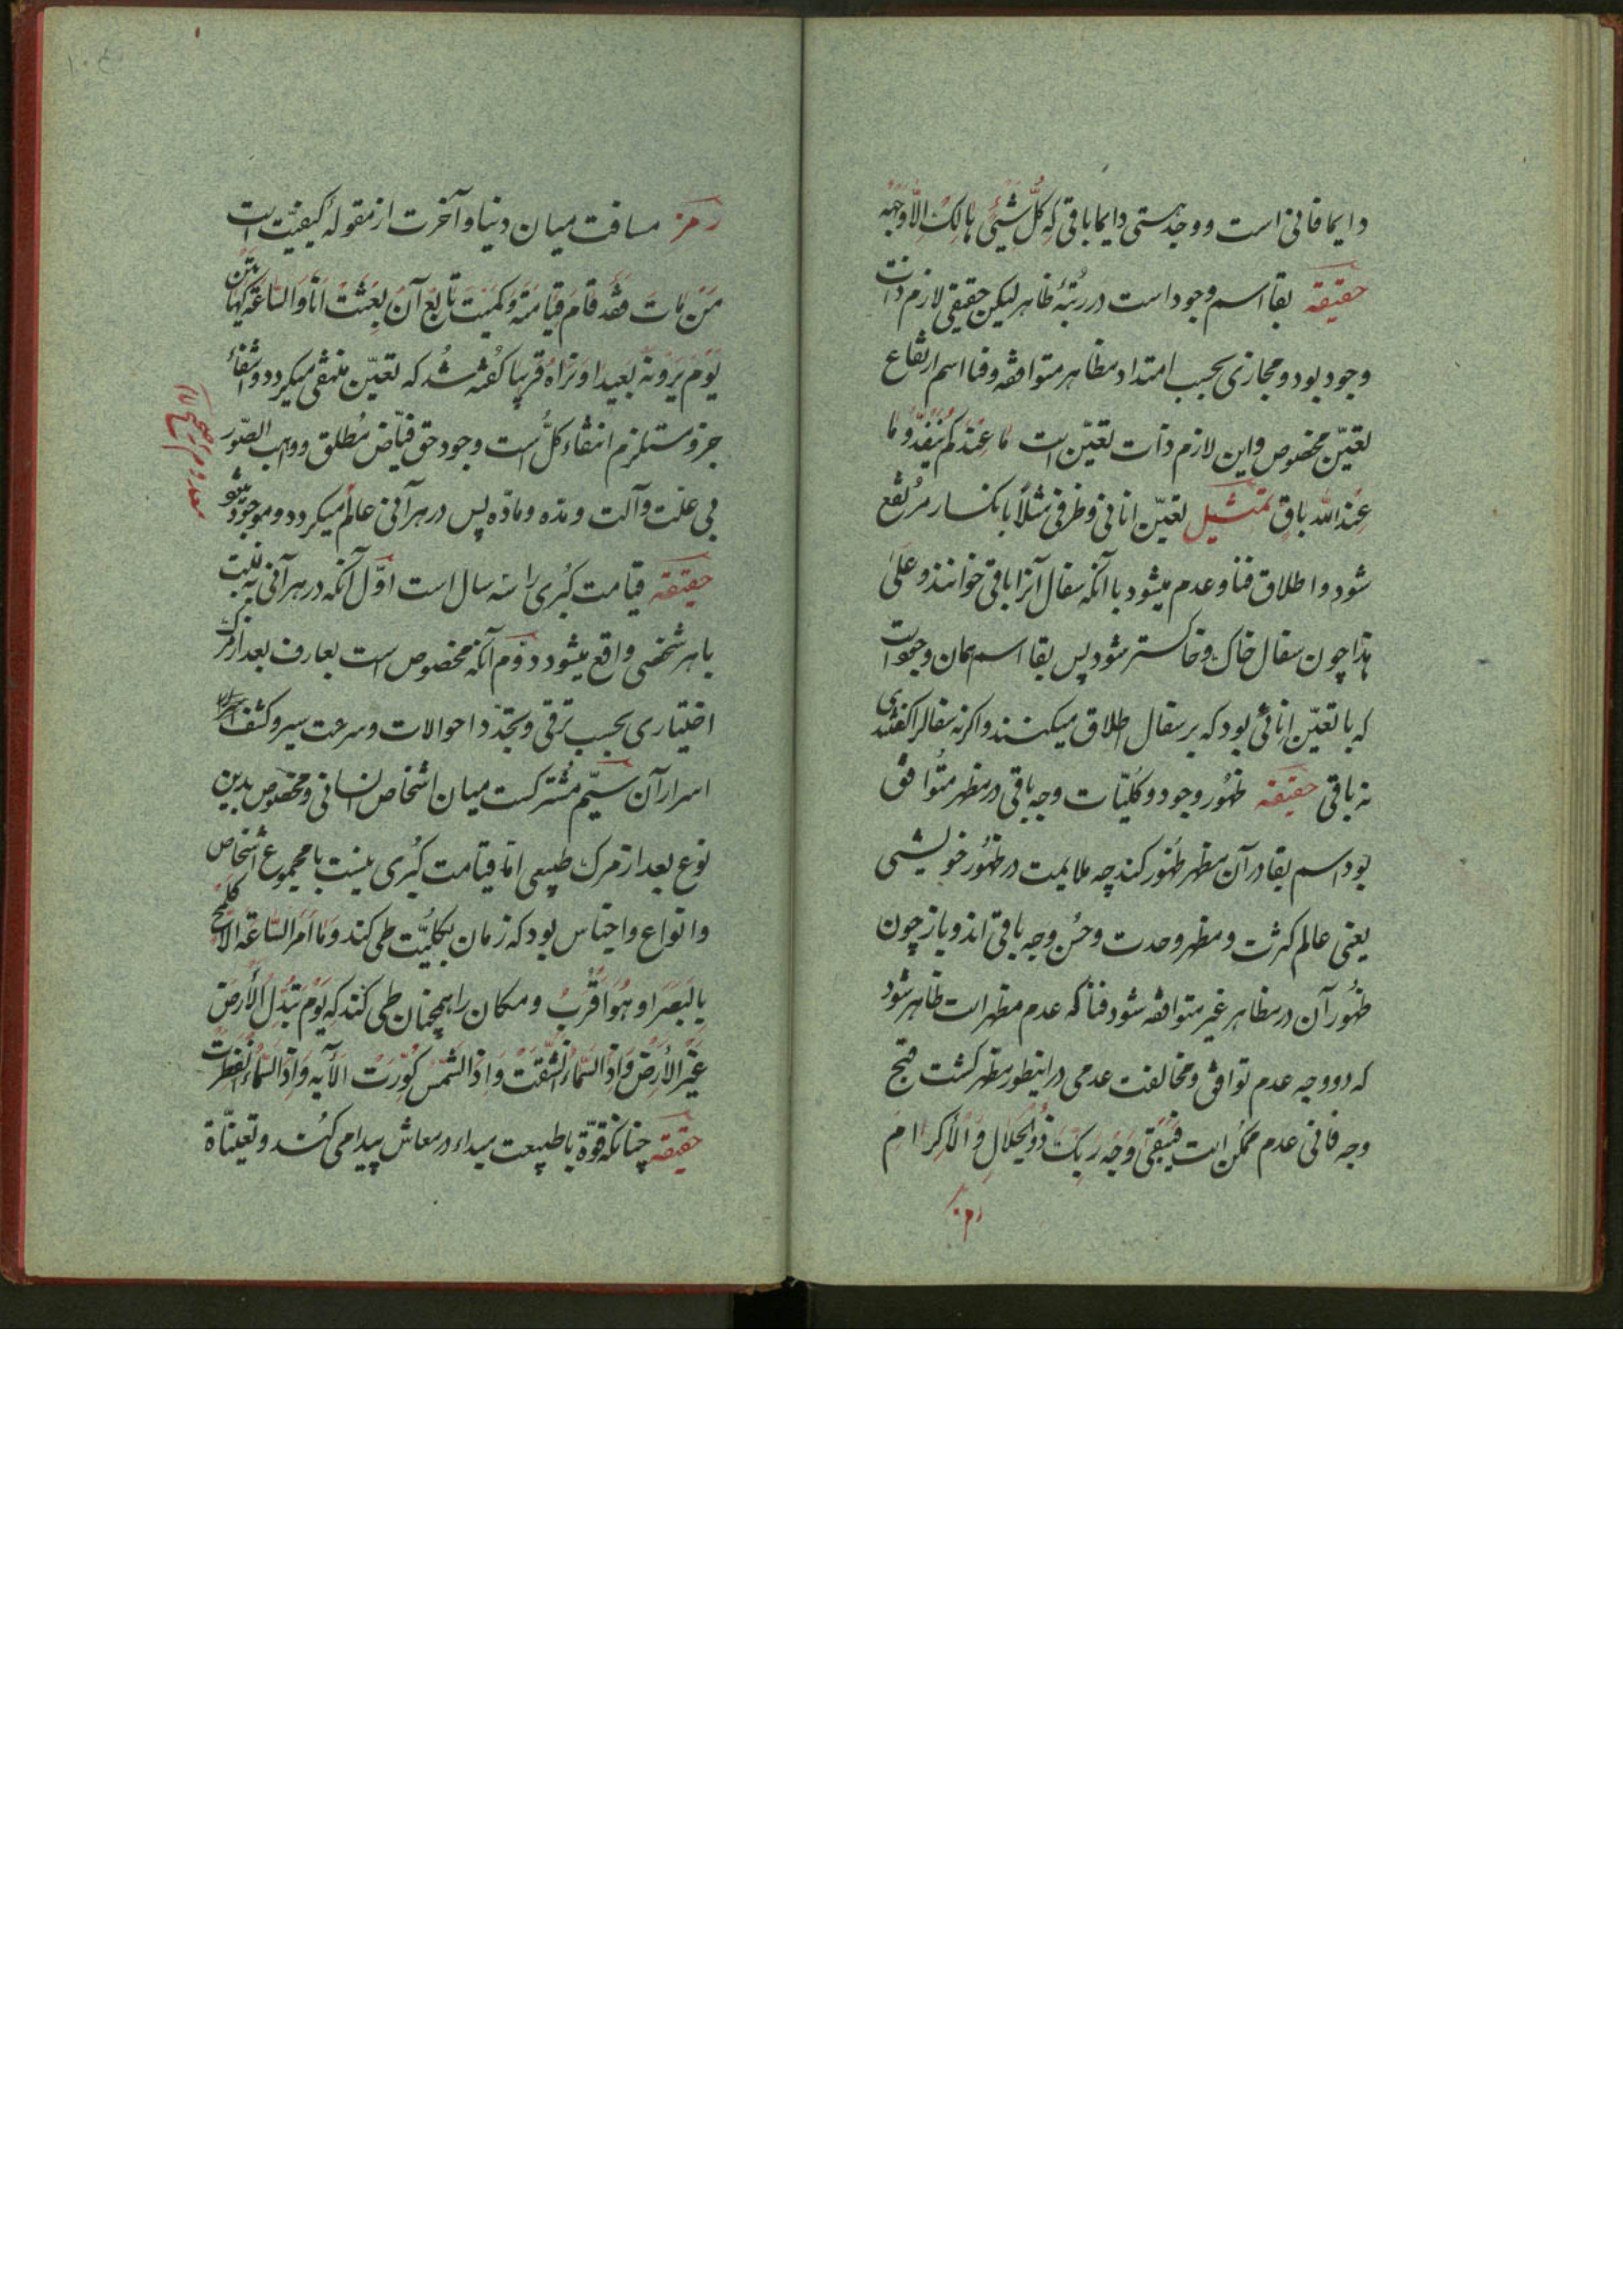 دایما فانی است و وجه هستی دایما باقی که كُلُّ شَيْئٍ هالِكٌ اِلّا وَجْهَه
حقیقة بقا اسم وجود است در رتبهٔ ظاهر لیکن حقیقی لازم ذات
وجود بود و مجازی بحسب امتداد مظاهر متوافقه و فنا اسم ارتفاع
تعیّن مخصوص و این لازم ذات تعیّن است ما عِنْدَكُم يَنْفَدُ وَما
عِنْدَ الله باقٍ تمثیل تعیّن انائی و ظرفی مثلاً بانکسار مرتفع
شود و اطلاق فنا و عدم میشود با آنکه سفال آنرا باقی خوانند و عَلی
هذا چون سفال خاک و خاکستر شود پس بقا اسم همان وجود است
که با تعیّن انائی بود که بر سفال اطلاق میکنند و اگر نه سفال را گفتندی
نه باقی حقیقة ظهور وجود و کلیّات وجه باقی در مظهر متوافق
بود اسم بقا در آن مظهر ظهور کند چه ملایمت در ظهور خویشی
یعنی عالم کثرت و مظهر وحدت و حُسن وجه باقی اند و باز چون
ظهور آن در مظاهر غیر متوافقه شود فنا که عدم مظهر است ظاهر شود
که دو وجه عدم توافق و مخالفت عدمی در اینطور مظهر گشت فتح
وجه فانی عدم ممکن است فَيَبْقى وَجْهُ رَبِّكَ ذُو الْجَلالِ وَالْاِكْرام
رمز
رمز مسافت میان دنیا و آخرت از مقولهٔ کیفیّت است
مَنْ ماتَ فَقَد قامَ قِيامَتُه و کمیّت تابع آن بُعِثْتُ اَنَا وَالسّاعَةُ كَهاتَيْن
يَوْمَ يَرَوْنَهُ بَعِيداً وَنَراهُ قَرِيبا گفته شد که تعیّن منتفی میگردد و انتفاء
جزو مستلزم انتفاء کلّ است وجود حق فیّاض مُطلق و واهب الصّور
بی علت و آلت و مدّه و مادّه پس در هر آنی عالم میگردد و موجود میشود
حقیقة قیامت کبری را سه سال است اوّل آنکه در هر آنی به نسبت
با هر شخصی واقع میشود دوّم آنکه مخصوص است بعارف بعد از مرگ
اختیاری بحسب ترقی و تجدّد احوالات و سرعت سیر و کشف
اسرار آن سیّم مشترکست میان اشخاص انسانی و مخصوص بدین
نوع بعد از مرگ طبیعی امّا قیامت کبری بنسبت با مجموع اشخاص
و انواع و اجناس بود که زمان بکلیّت طی کند وَما اَمْرُ السّاعَةِ اِلّا كَلَمْحٍ
بِالْبَصَرِ اَو هُوَ اَقْرَبُ و مکان را همچنان طی کند که يَوْمَ تُبَدَّلُ الْاَرْضُ
غَيْرَ الْاَرْضِ وَاِذَا السَّماءُ انْشَقَّتْ وَاِذَا الشَّمْسُ كُوِّرَتْ الآیه وَاِذَا السَّماءُ انْفَطَرَتْ
حقیقة چنانکه قوّة با طبیعت مبداء در معاش پیدا می کند و تعینّاة